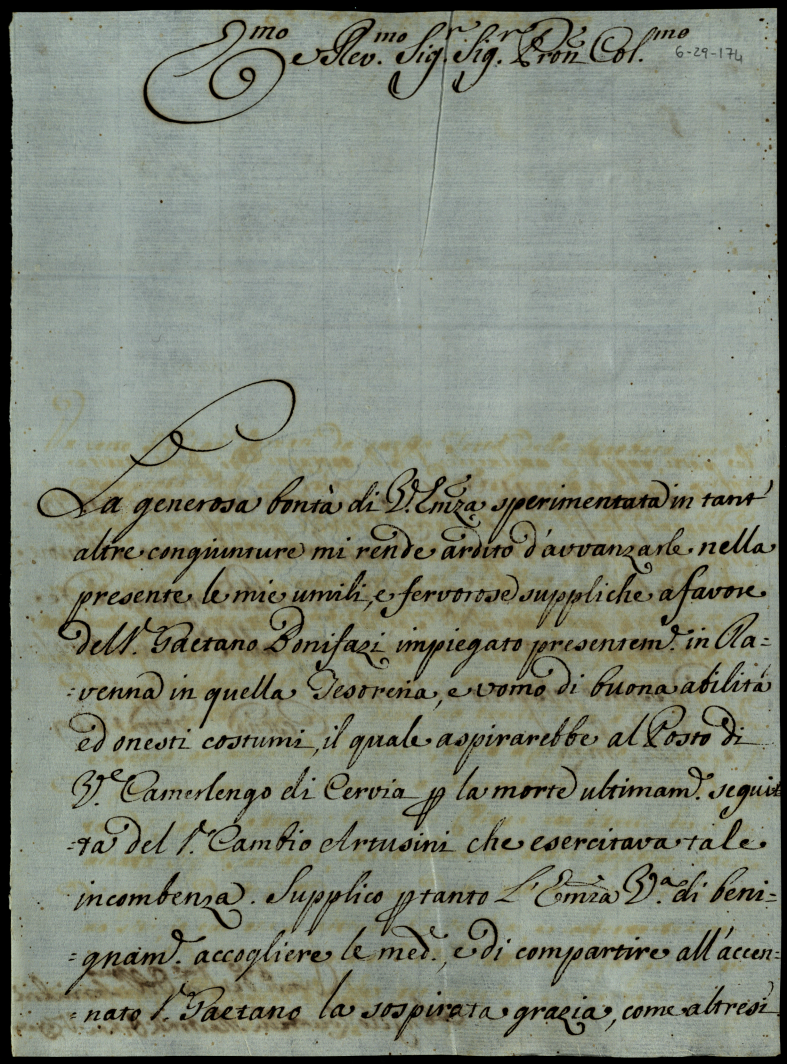 E.mo e Rev.mo Sig.r Sig.r Pron Col.mo
6-29-174
La generosa bontà di V. Emza sperimentata in tant'
altre congiunture mi rende ardito d'avvanzarle nella
presente le mie umili, e fervorose suppliche a favore
del S.r Gaetano Bonifazi impiegato presentem.e in Ra=
=venna in quella Tesoreria, e uomo di buona abilità
ed onesti costumi, il quale aspirarebbe al Posto di
V.e Camerlengo di Cervia p la morte ultimam.e segui=
=ta del S.r Cambio Artusini che esercitava tale
incombenza. Supplico ptanto L'Emza V.a di beni=
=gnam.e accogliere le med.e, e di compartire all'accen=
=nato S.r Gaetano la sospirata grazia, come altresì